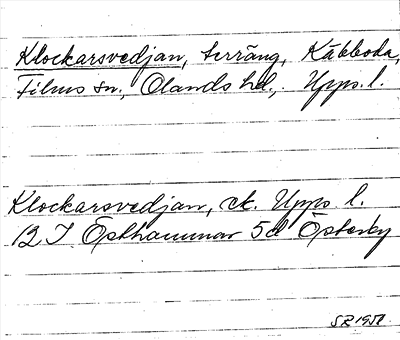 Klockarsvedjan, terräng, Käbboda,
Films sn., Olands hd., Upps. l.
Klockarsvedjan, ek. Upps. l.
12 I Östhammar 5d Österby
SR 1958